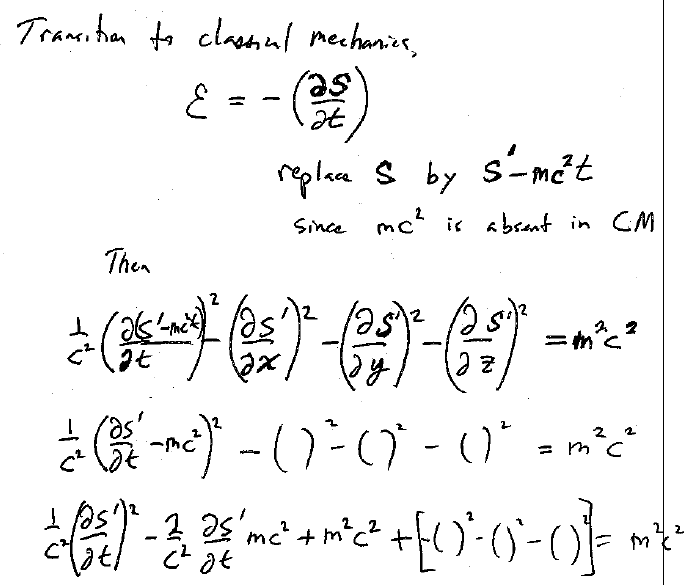 Transition to classical mechanics,
ℰ = -(∂S/∂t)
replace S by S'-mc²t
since mc² is absent in CM
Then
1/c² (∂(S'-mc²t)/∂t)² - (∂S'/∂x)² - (∂S'/∂y)² - (∂S'/∂z)² = m²c²
1/c² (∂S'/∂t - mc²)² - ( )² - ( )² - ( )² = m²c²
1/c² (∂S'/∂t)² - 2/c² ∂S'/∂t mc² + m²c² + [-( )² - ( )² - ( )²] = m²c²